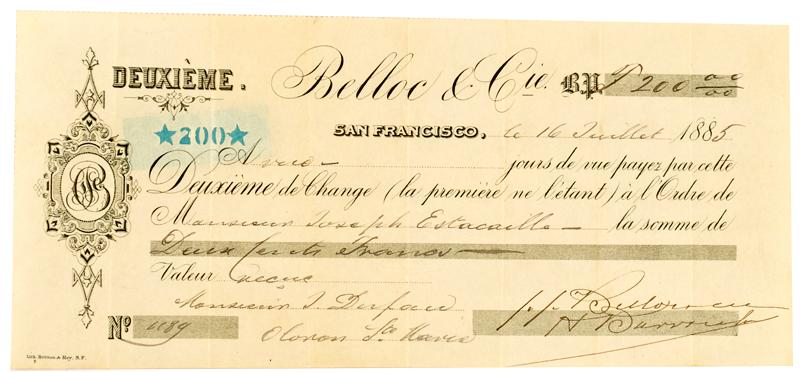 DEUXIÈME. Belloc & Cie. B.P. F 200 00/00
★200★ SAN FRANCISCO, le 16 Juillet 1885
A vue jours de vue payez par cette
Deuxième de Change (la première ne l'étant) à l'Ordre de
Monsieur Joseph Estacaille la somme de
Deux Cents Francs
Valeur reçue
Monsieur J.
No. 1189 Oloron Ste Marie
Lith. Britton & Rey. S.F.